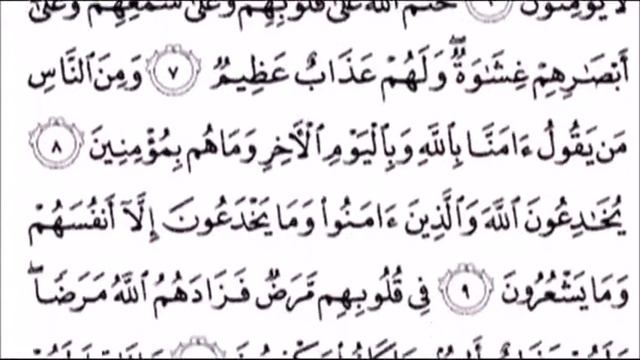 لَا يُؤْمِنُونَ ٦ خَتَمَ ٱللَّهُ عَلَىٰ قُلُوبِهِمْ وَعَلَىٰ سَمْعِهِمْ وَعَلَىٰٓ
أَبْصَٰرِهِمْ غِشَٰوَةٌۖ وَلَهُمْ عَذَابٌ عَظِيمٌ ٧ وَمِنَ ٱلنَّاسِ
مَن يَقُولُ ءَامَنَّا بِٱللَّهِ وَبِٱلْيَوْمِ ٱلْأَخِرِ وَمَا هُم بِمُؤْمِنِينَ ٨
يُخَٰدِعُونَ ٱللَّهَ وَٱلَّذِينَ ءَامَنُوا۟ وَمَا يَخْدَعُونَ إِلَّآ أَنفُسَهُمْ
وَمَا يَشْعُرُونَ ٩ فِى قُلُوبِهِم مَّرَضٌ فَزَادَهُمُ ٱللَّهُ مَرَضًاۖ